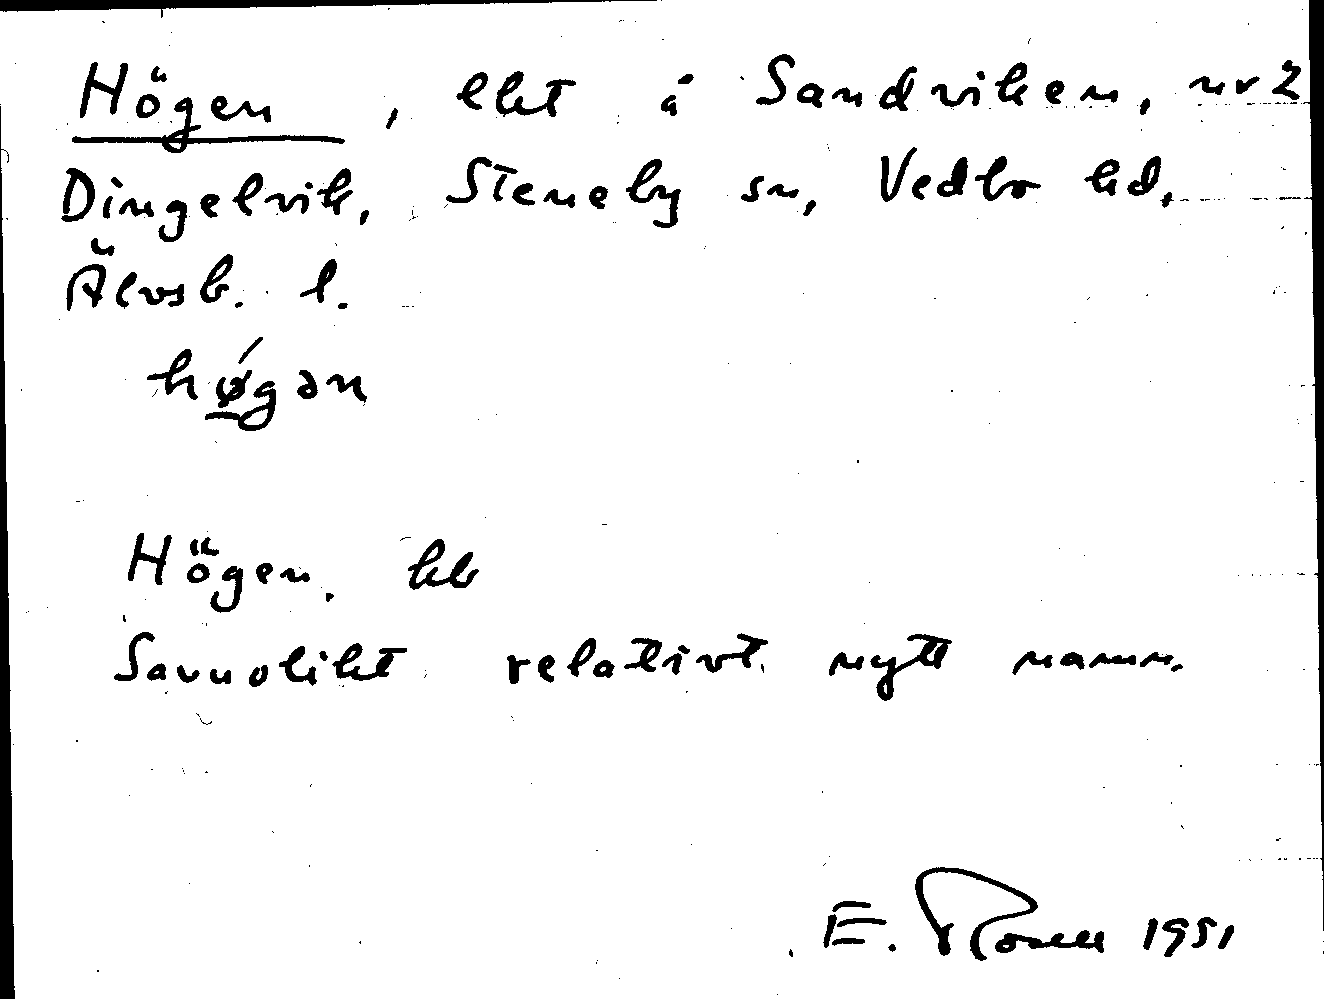 Högen, lht å Sandviken, nr 2
Dingelvik, Steneby sn, Vedbo hd,
Älvsb. l.
hǿ̱gən
Högen. kb
Sannolikt relativt nytt namn.
E. Rosell 1951